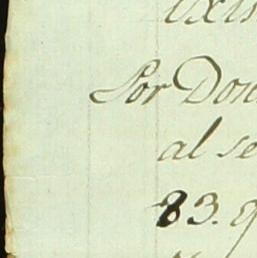 Por Don
al se
83. q